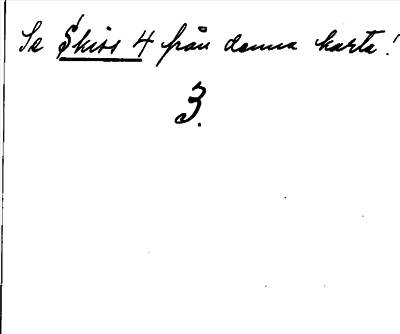 Se Skiss 4 från denna karta!
3.